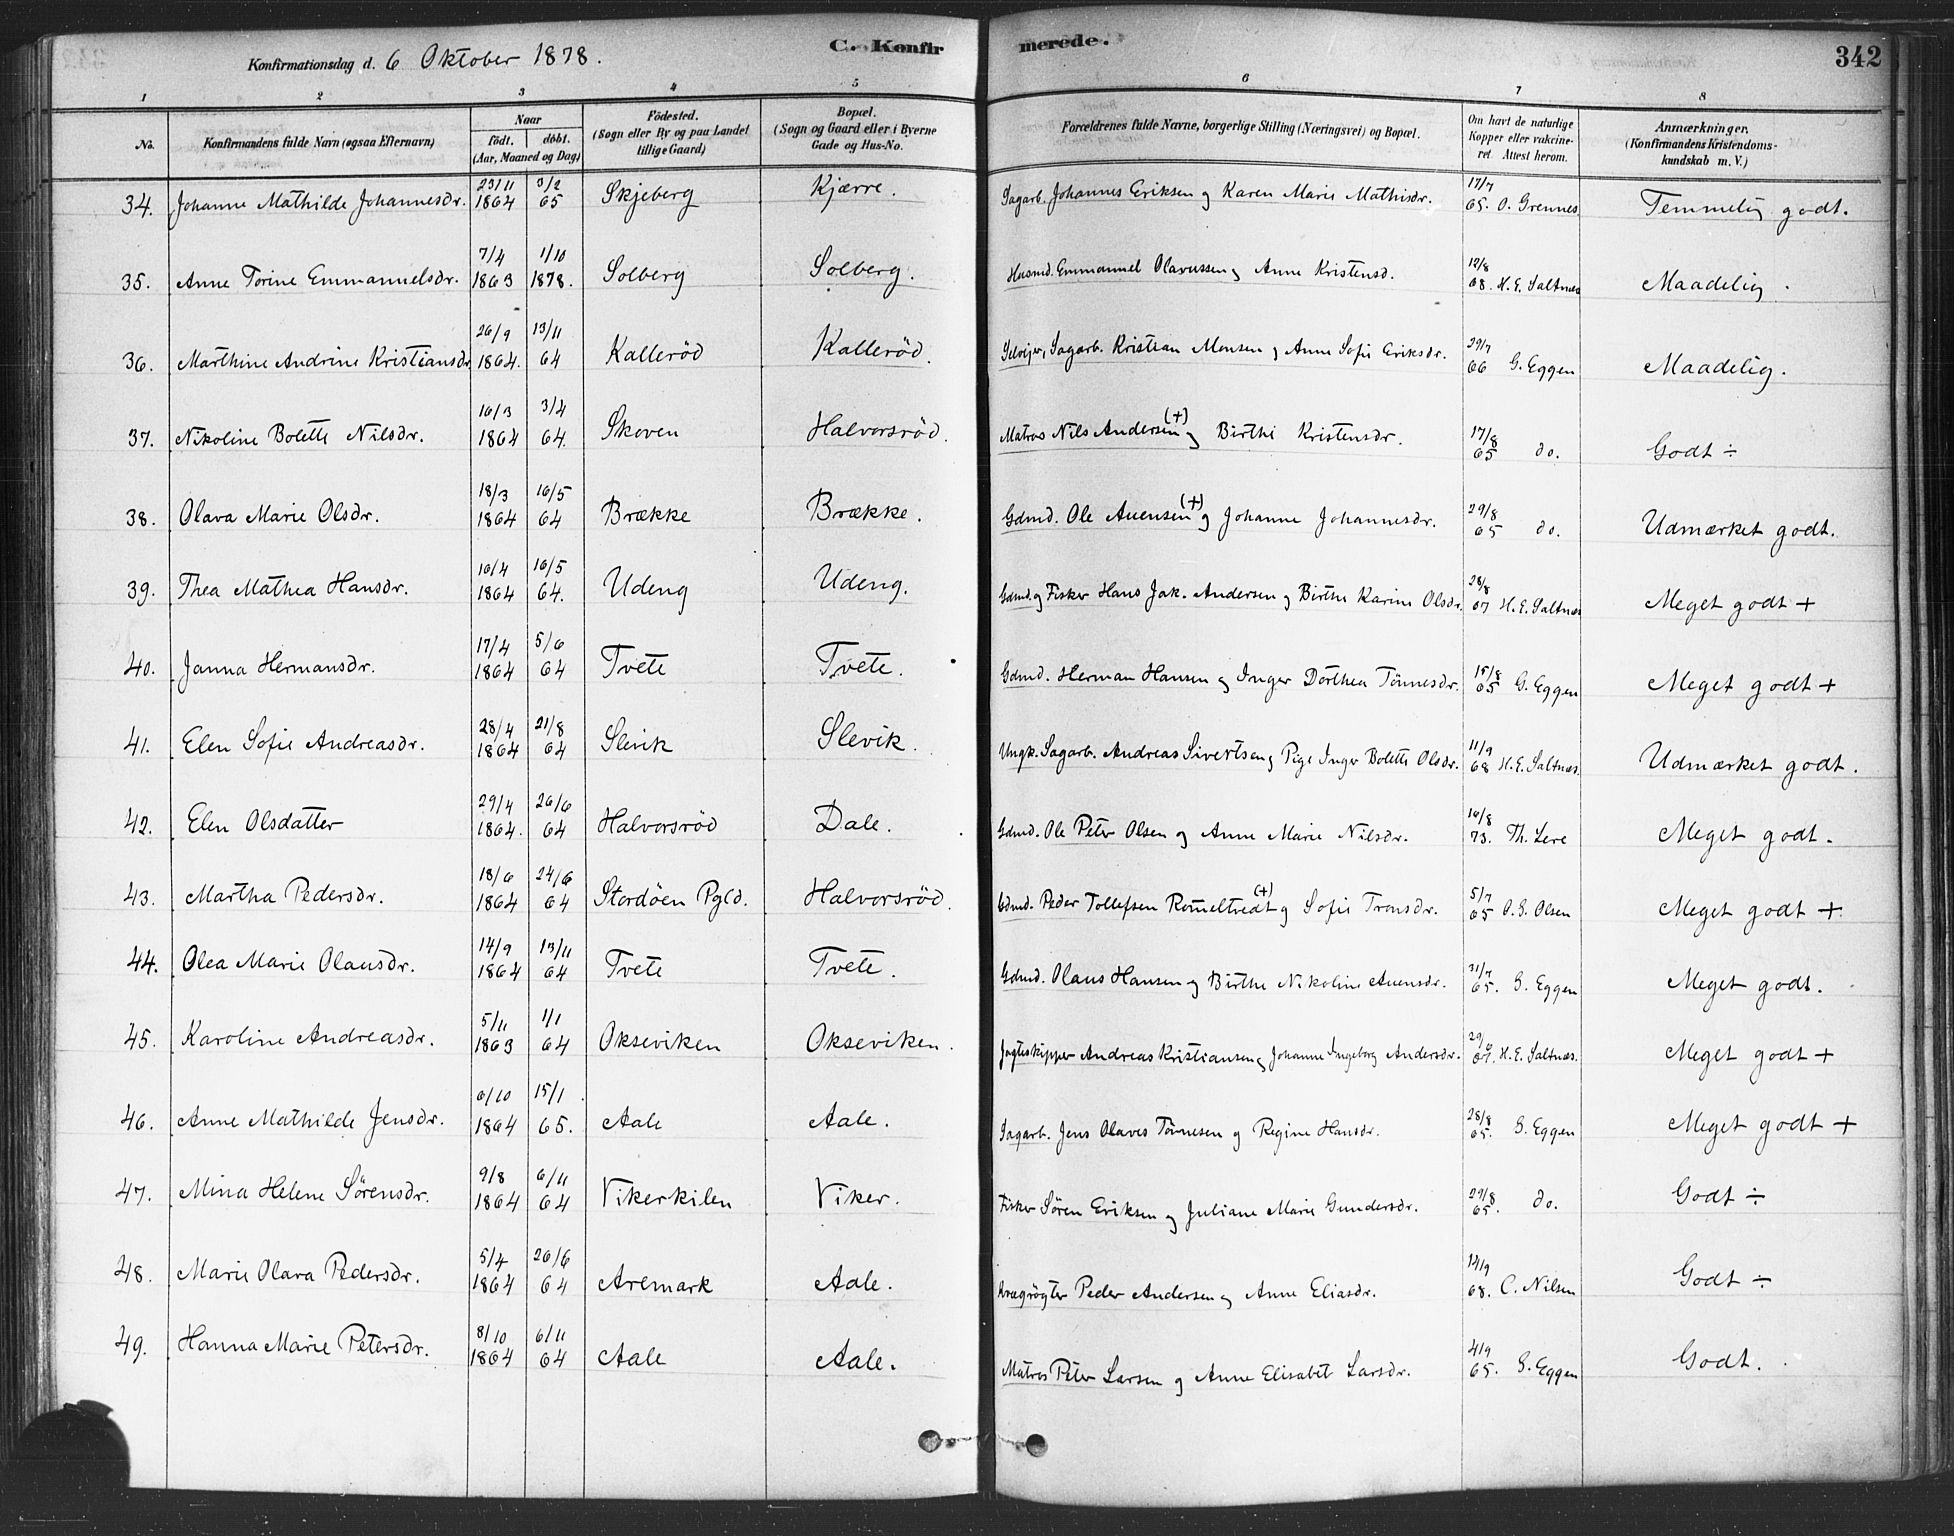 Konfirmationsdag d. 6 Oktober 1878.
C. Konfirmerede.
342
1 2 3 4 5 6 7 8
No. Konfirmandens fulde Navn (ogsaa Efternavn) Naar født. døbt. (Aar, Maaned og Dag) Födested. (Sogn eller By og paa Landet tillige Gaard) Bopæl. (Sogn og Gaard eller i Byerne Gade og Hus-No. Forældrenes fulde Navne, borgerlige Stilling (Næringsvei) og Bopæl. Om havt de naturlige Kopper eller vakcineret. Attest herom. Anmærkninger. (Konfirmandens Kristendomskundskab m. V.)
34. Johanne Mathilde Johannesdr. 23/11 1864 3/2 65 Skjeberg Kjærre. Sagarb. Johannes Eriksen og Karen Marie Mathisdr. 17/7 65. O. Grennes Temmelig godt.
35. Anne Torine Emmanuelsdr. 7/4 1863 1/10 1878. Solberg Solberg. Husmd. Emmanuel Olavussen og Anne Kristensd. 12/8 68. H. E. Saltnes Maadelig.
36. Marthine Andrine Kristiansdr. 26/9 1864. 13/11 64 Kallerød Kallerød. Selveier, Sagarb. Kristian Monsen og Anne Sofie Eriksdr. 29/7 66 G. Eggen Maadelig.
37. Nikoline Bolette Nilsdr. 16/3 1864 3/4 64. Skoven Halvorsrød. Matros Nils Andersen (+) og Birthe Kristensdr. 17/8 65 do. Godt ÷
38. Olava Marie Olsdr. 18/3 1864 16/5 64 Brække Brække. Gdmd. Ole Auensen (+) og Johanne Johannesdr. 29/8 65 do. Udmærket godt.
39. Thea Mathea Hansdr. 10/4 1864 16/5 64. Udeng Udeng. Gdmd. og Fisker Hans Jak. Andersen og Birthe Karine Olsdr. 28/8 67 H. E. Saltnes Meget godt +
40. Janna Hermansdr. 17/4 1864 5/6 64 Tvete Tvete. Gdmd. Herman Hansen og Inger Dorthea Tønnesdr. 15/8 65 G. Eggen Meget godt +
41. Elen Sofie Andreasdr. 28/4 1864 21/8 64 Slevik Slevik. Ungk. Sagarb. Andreas Sivertsen og Pige Inger Bolette Olsdr. 11/9 68 H. E. Saltnæs. Udmærket godt.
42. Elen Olsdatter 29/4 1864. 26/6 64 Halvorsrød Dale. Gdmd. Ole Peter Olsen og Anne Marie Nilsdr. 16/8 73. Th. Lere Meget godt.
43. Martha Pedersdr. 18/6 1864 24/6 64 Stordøen Pgld. Halvorsrød. Gdmd. Peder Tollefsen Romeltvedt (+) og Sofie Tronsdr. 5/7 65 O. S. Olsen Meget godt +
44. Olea Marie Olausdr. 14/9 1864 13/11 64 Tvete Tvete. Gdmd. Olaus Hansen og Birthe Nikoline Auensdr. 31/7 65. G. Eggen Meget godt.
45. Karoline Andreasdr. 5/11 1863 1/1 64 Okseviken Okseviken. Jagteskipper Andreas Kristiansen og Johanne Ingeborg Andersdr. 29/6 67. H. E. Saltnæs. Meget godt +
46. Anne Mathilde Jensdr. 6/10 1864 15/1 65. Aale Aale. Sagarb. Jens Olaves Tønnesen og Regine Hansdr. 28/8 65. G. Eggen Meget godt +
47. Mina Helene Sørensdr. 9/8 1864 6/11 64 Vikerkilen Viker. Fisker Søren Eriksen og Juliane Marie Gundersdr. 29/8 65. do. Godt ÷
48. Marie Olava Pedersdr. 5/4 1864 26/6 64 Aremark Aale. Krægrøgter Peder Andersen og Anne Eliasdr. 14/9 68. C. Nilsen Godt ÷
49. Hanna Marie Petersdr. 8/10 1864 6/11 64 Aale Aale. Matros Peter Larsen og Anne Elisabet Larsdr. 4/9 65. G. Eggen Godt.